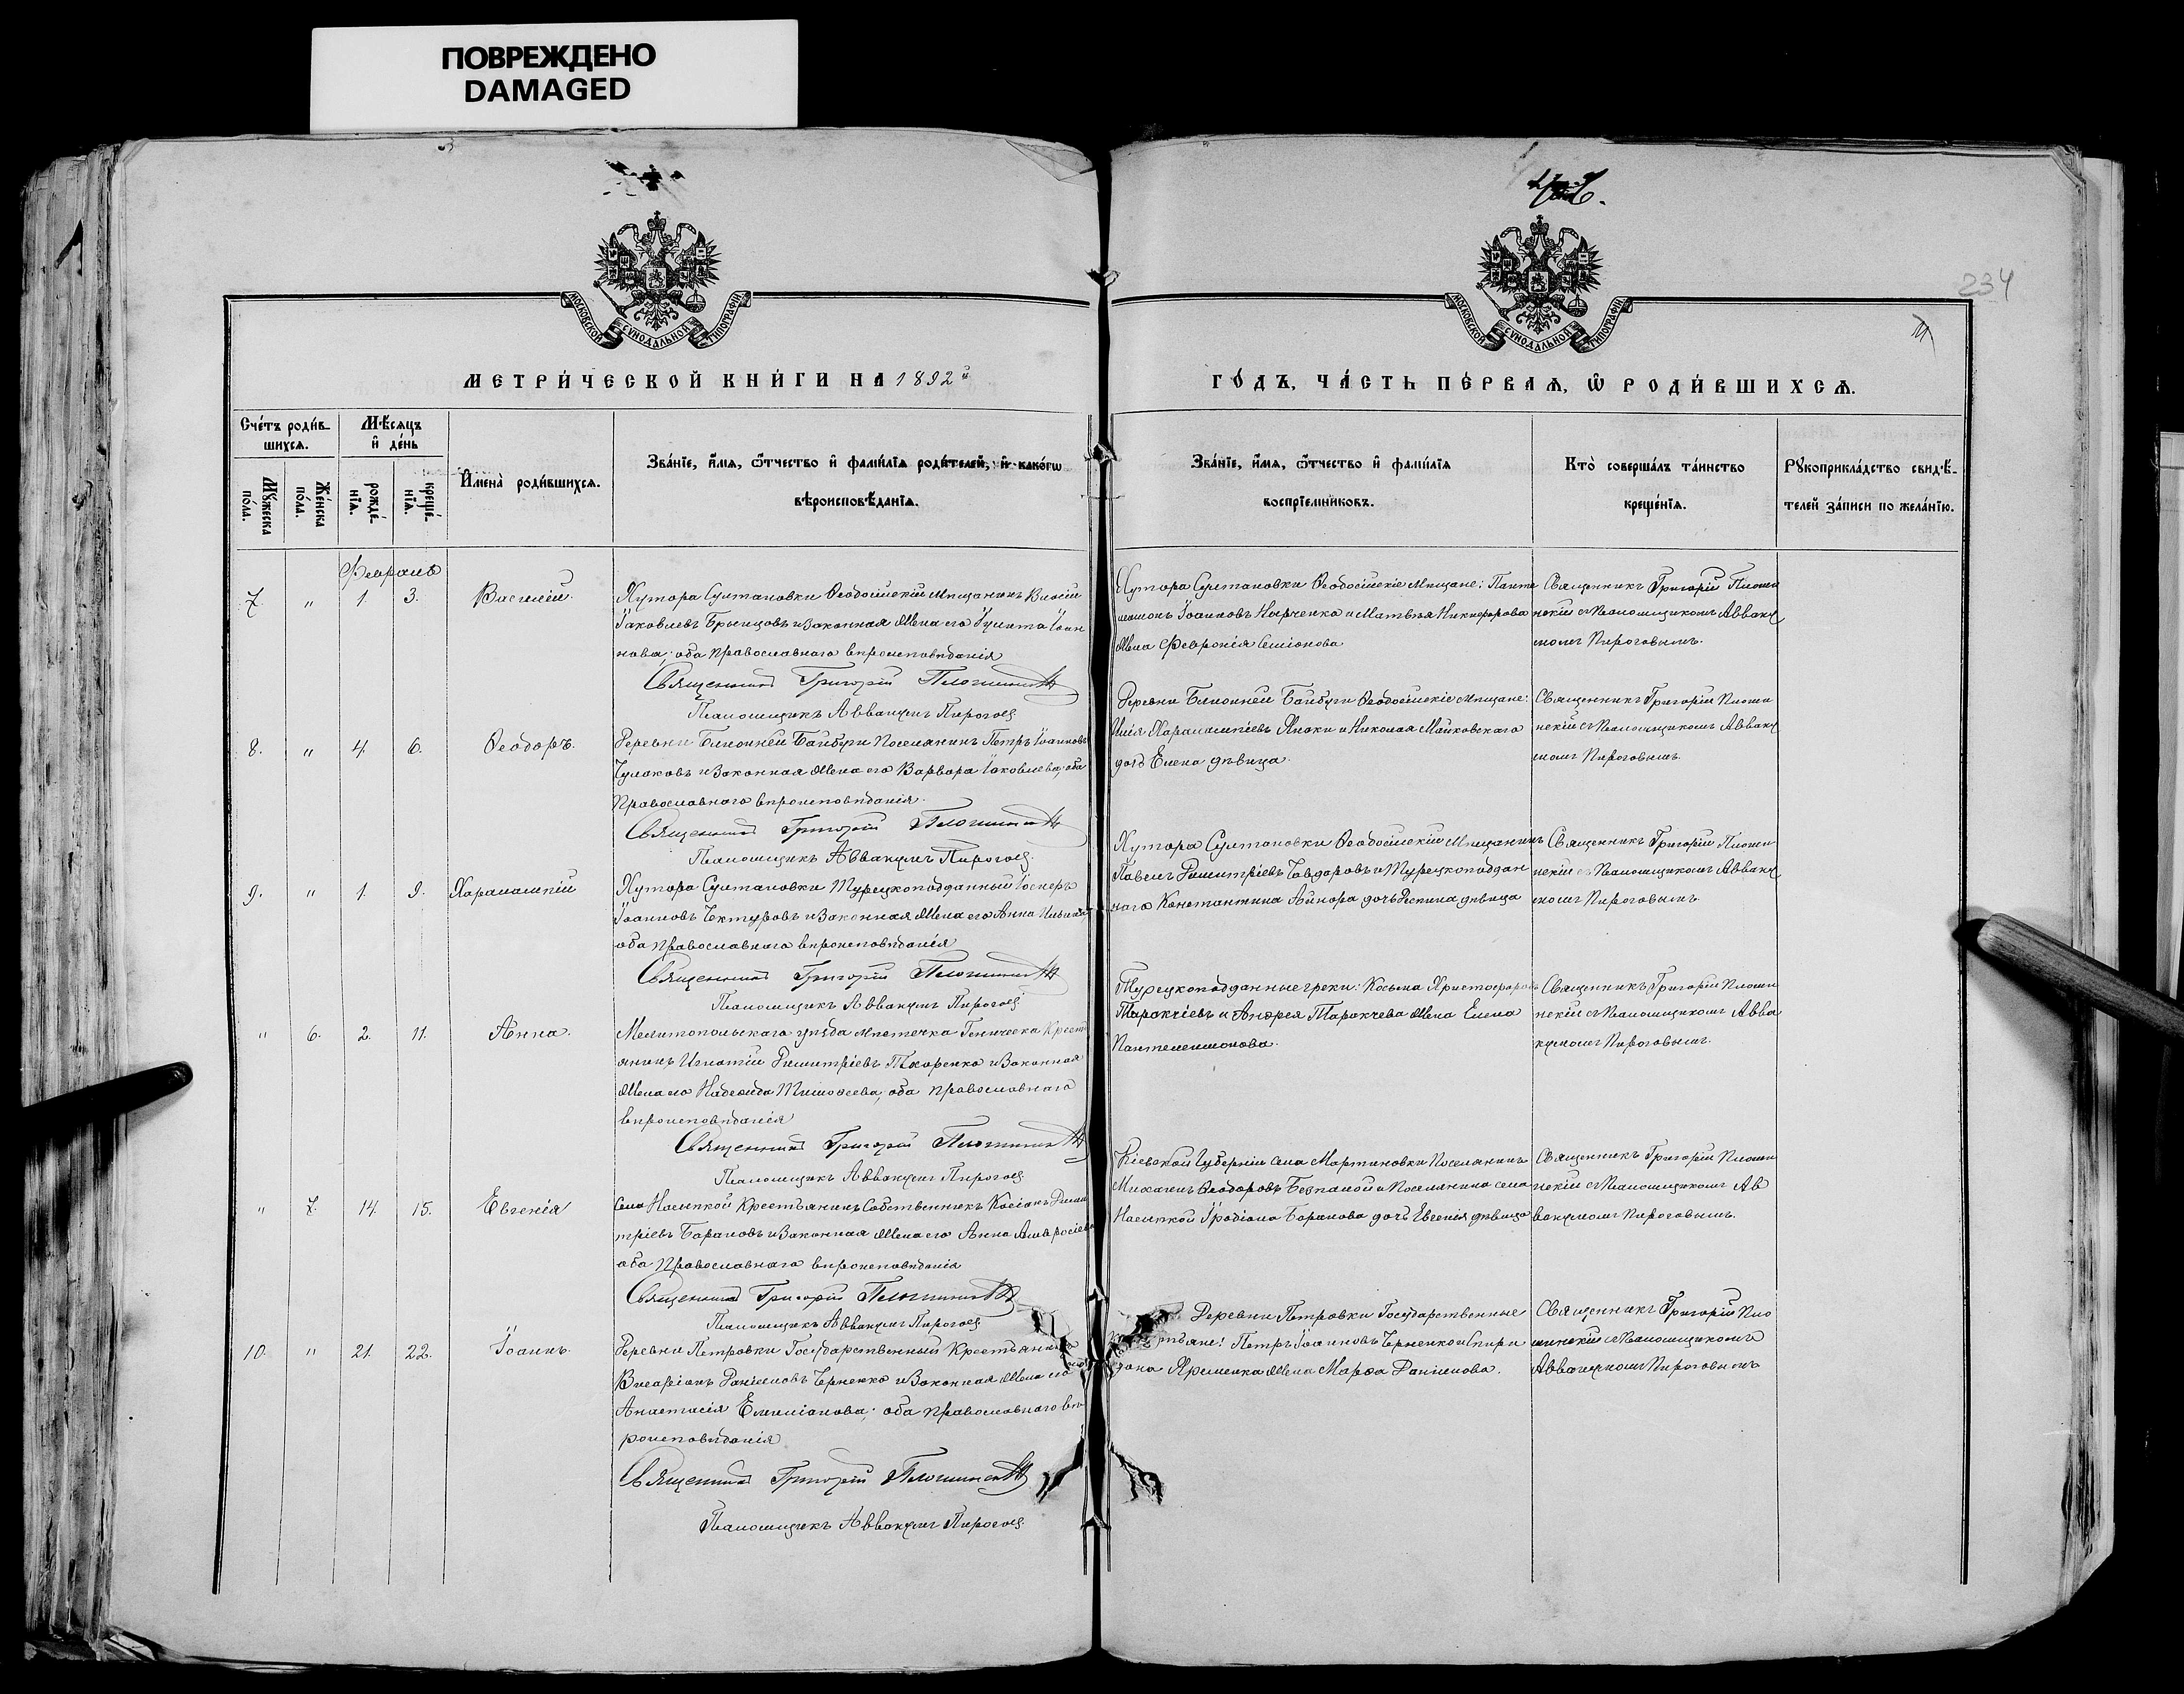 ПОВРЕЖДЕНО
DAMAGED
234
МОСКОВСКОЙ СѴНОДАЛЬНОЙ ТИПОГРАФІИ
МОСКОВСКОЙ СѴНОДАЛЬНОЙ ТИПОГРАФІИ
МЕТРИ́ЧЕСКОЙ КНИ́ГИ НА 1892й
ГО́ДЪ, ЧА́СТЬ ПЕ́РВАѦ, Ѿ РОДИ́ВШИХСѦ.
Сче́тъ роди́в-
шихсѧ.
Мѣ́сяцъ
и҆ де́нь
Мꙋ́жеска
по́ла.
Же́нска
по́ла.
рожде́-
нїѧ.
креще́-
нїѧ.
И҆мена̀ роди́вшихсѧ.
Зва́нїе, и҆́мѧ, ѻ҆́тчество и҆ фами́лїѧ роди́телей, и҆ како́гѡ
вѣроисповѣ́данїѧ.
Зва́нїе, и҆́мѧ, ѻ҆́тчество и҆ фами́лїѧ
воспрїе́мниковъ.
Кто̀ соверша́лъ та́инство
креще́нїѧ.
Рꙋкоприкла́дство свидѣ́-
телей за́писи по жела́нїю.
Февраль
7. " 1. 3. Василій.
Хутора Султановки Ѳеодосійскій мѣщанинъ Власій
Іаковлевъ Брынцовъ и законная жена его Іулита Іоан
нова; оба православнаго вѣроисповѣданія
Священникъ Григорій Плошинскій
Псаломщикъ Аввакумъ Пироговъ
Хутора Султановки Ѳеодосійскіе мѣщане: Панте
леимонъ Іоанновъ Нырченко и Матвѣя Никифорова
жена Февронія Симіонова
Священникъ Григорій Плоши
нскій съ Псаломщикомъ Авваку
момъ Пироговымъ.
8. " 4. 6. Ѳеодоръ.
Деревни Ближней Байбуги Поселянинъ Петръ Іоанновъ
Чулаковъ и законная жена его Варвара Іаковлева; оба
православнаго вѣроисповѣданія.
Священникъ Григорій Плошинскій
Псаломщикъ Аввакумъ Пироговъ.
Деревни Ближней Байбуги Ѳеодосійскіе мѣщане:
Илія Харалампіевъ Яноки и Николая Майковскаго
дочь Елена дѣвица.
Священникъ Григорій Плоши
нскій съ Псаломщикомъ Авваку
момъ Пироговымъ.
9. " 1. 9. Харалампій
Хутора Султановки Турецкоподданный Іосифъ
Іоанновъ Чектуровъ и законная жена его Анна Ильина
оба православнаго вѣроисповѣданія
Священникъ Григорій Плошинскій
Псаломщикъ Аввакумъ Пироговъ
Хутора Султановки Ѳеодосійскій мѣщанинъ
Павелъ Димитріевъ Чавдаровъ и Турецкоподдан
наго Константина Айнора дочь Деспина дѣвица
Священникъ Григорій Плоши
нскій съ Псаломщикомъ Авваку
момъ Пироговымъ.
" 6. 2. 11. Анна.
Мелитопольскаго уѣзда мѣстечка Геническа Кресть
янинъ Игнатій Димитріевъ Токоренко и законная
жена его Надежда Тимоѳеева, оба православнаго
вѣроисповѣданія
Священникъ Григорій Плошинскій
Псаломщикъ Аввакумъ Пироговъ
Турецкоподданные греки: Косьма Христофоровъ
Таракчіевъ и Андрея Таракчева жена Елена
Пантелеимонова.
Священникъ Григорій Плоши
нскій съ Псаломщикомъ Авва
кумомъ Пироговымъ.
" 7. 14. 15. Евгенія
Села Насыпкой Крестьянинъ Собственникъ Касіанъ Дими
тріевъ Барановъ и законная жена его Анна Амвросіева
оба православнаго вѣроисповѣданія
Священникъ Григорій Плошинскій
Псаломщикъ Аввакумъ Пироговъ
Кіевской Губерніи села Мартиновки Поселянинъ
Михаилъ Ѳеодоровъ Безпалой и Поселянина села
Насыпкой Іродіона Баранова дочь Евгенія дѣвица
Священникъ Григорій Плоши
нскій съ Псаломщикомъ Ав
вакумомъ Пироговымъ.
10. " 21. 22. Іоаннъ.
Деревни Петровки Государственный Крестьянинъ
Виссаріонъ Даніиловъ Черненко и законная жена его
Анастасія Емиліанова; оба православнаго вѣ
роисповѣданія
Священникъ Григорій Плошинскій
Псаломщикъ Аввакумъ Пироговъ.
Деревни Петровки Государственные
тьяне: Петръ Іоанновъ Черненко и Спири
дона Яременка жена Марѳа Даніилова.
Священникъ Григорій Пло
шинскій съ Псаломщикомъ
Аввакумомъ Пироговымъ